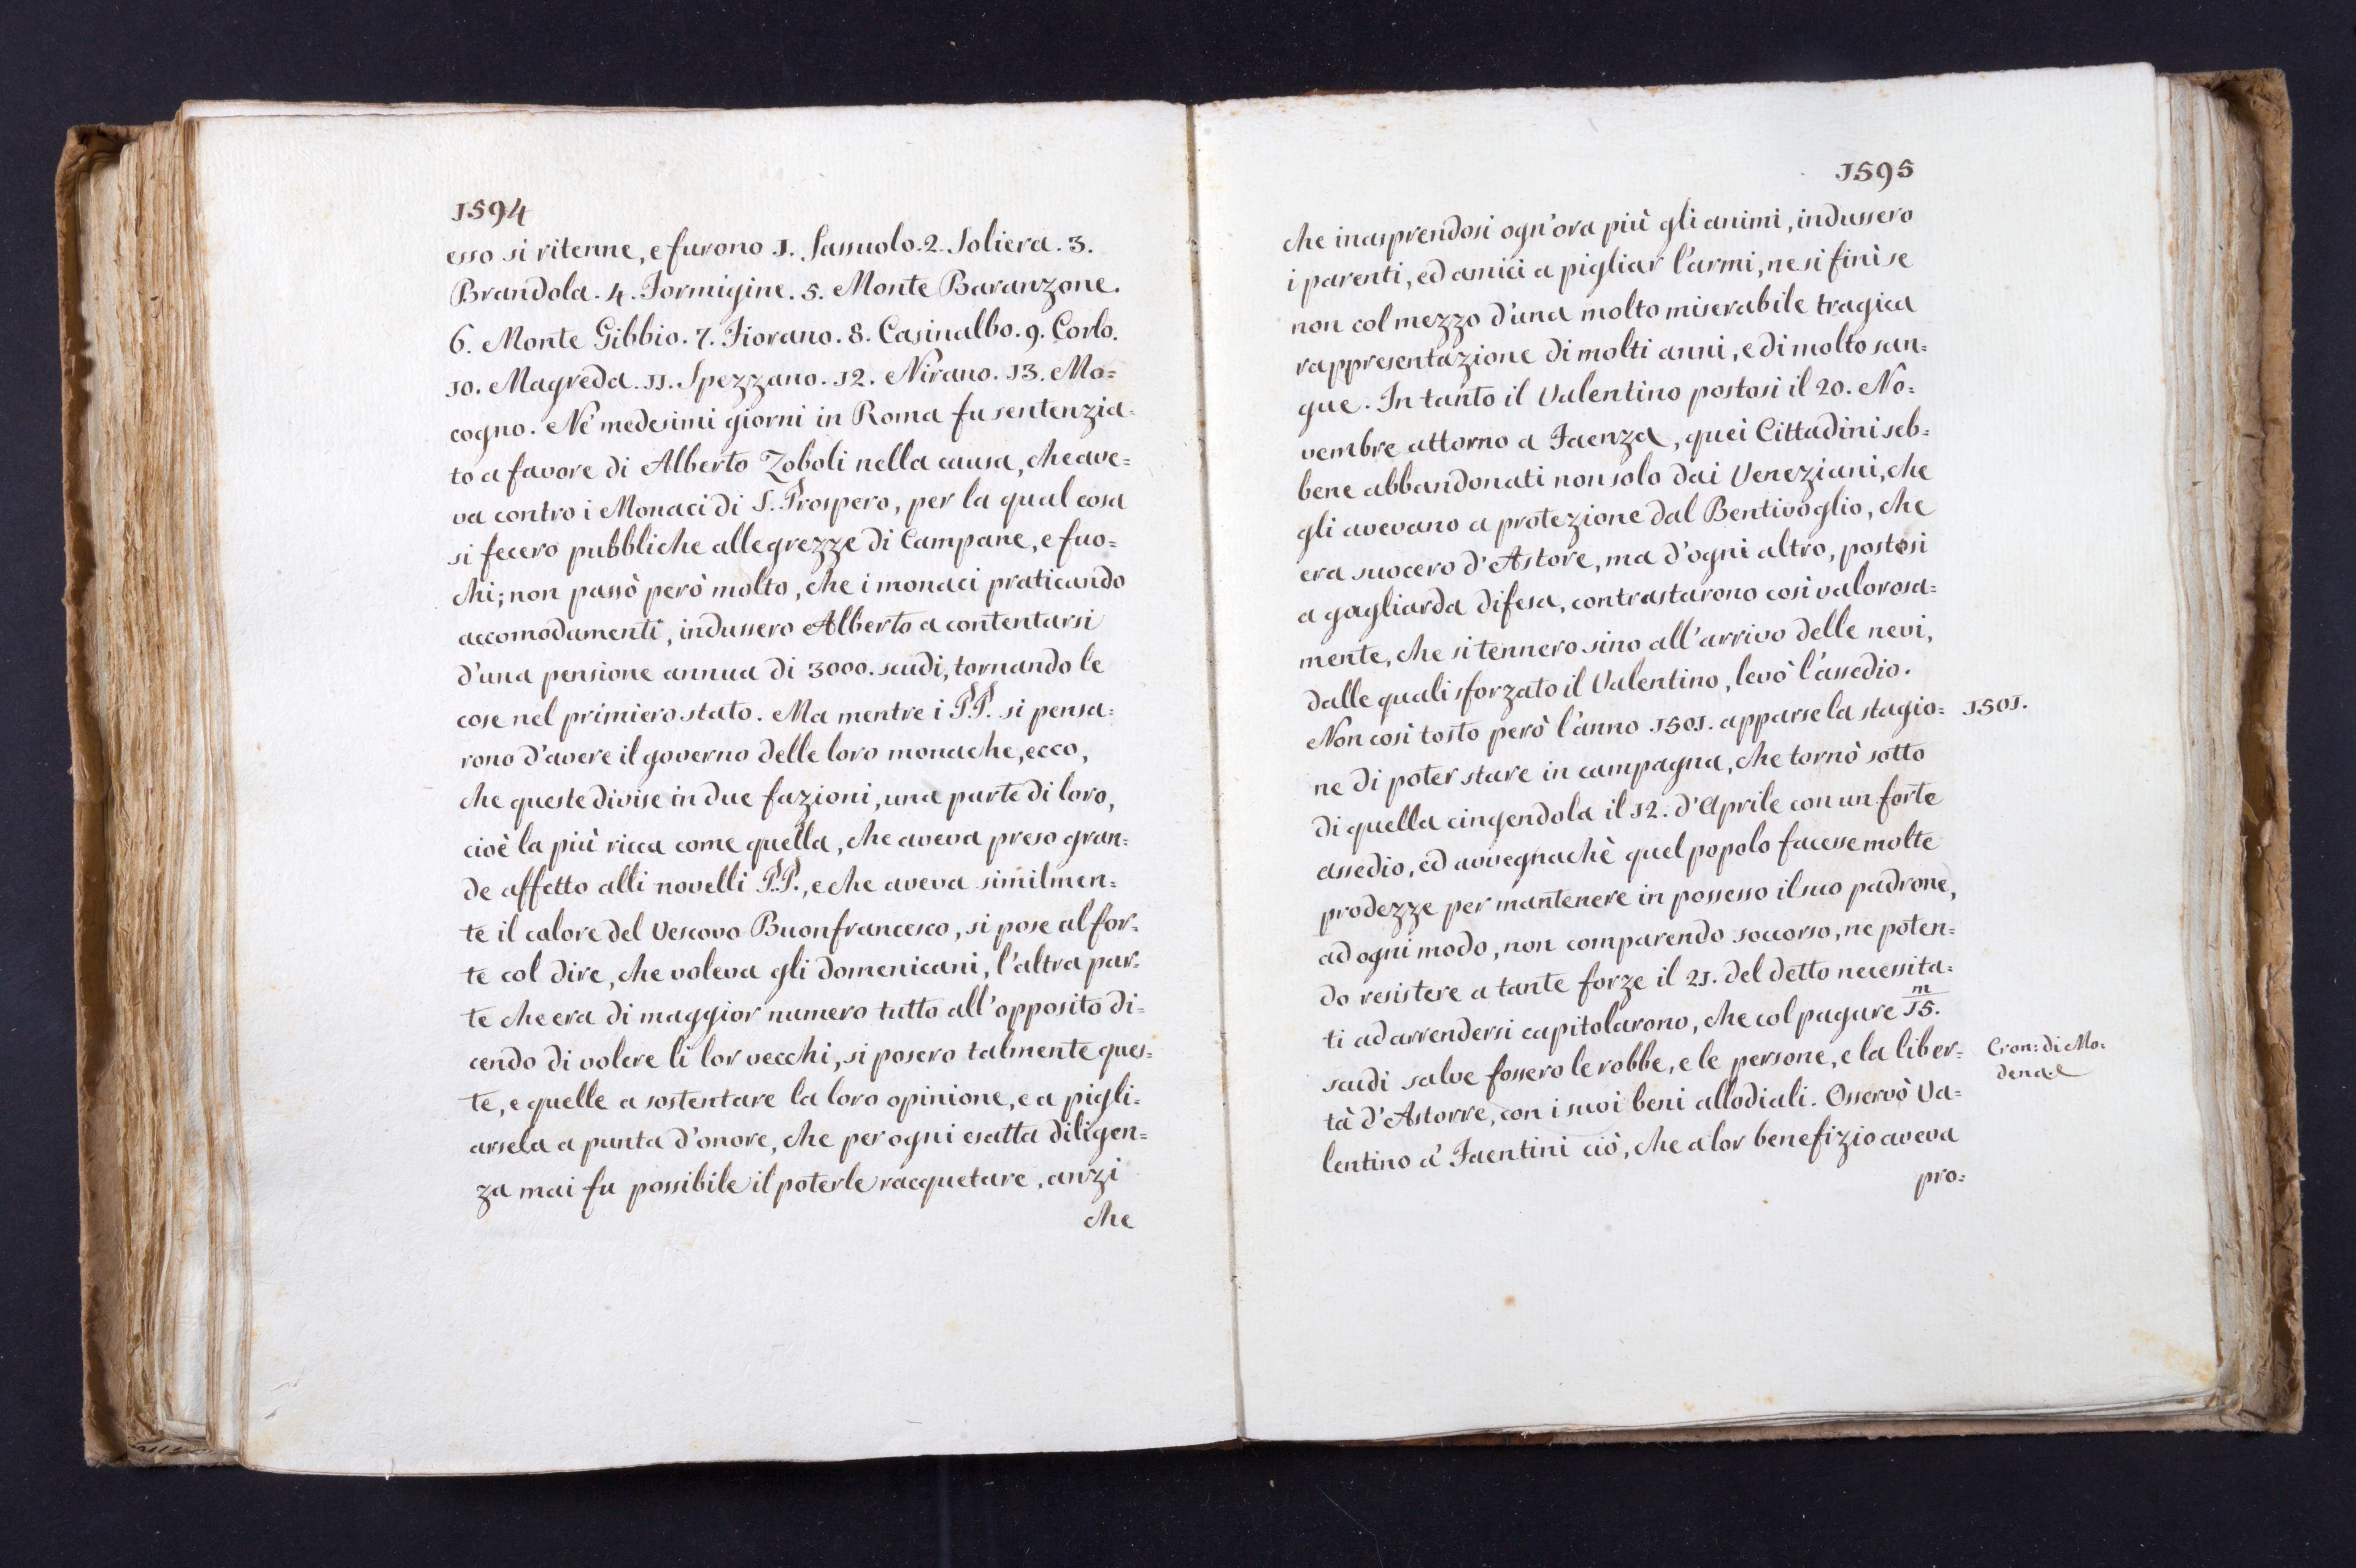 1594
esso si ritenne, e furono 1. Sassuolo. 2. Soliera. 3.
Brandola. 4. Formigine. 5. Monte Baranzone.
6. Monte Gibbio. 7. Fiorano. 8. Casinalbo. 9. Corlo.
10. Magreda. 11. Spezzano. 12. Nirano. 13. Mo=
cogno. Ne' medesimi giorni in Roma fu sentenzia=
to a favore di Alberto Zoboli nella causa, che ave=
va contro i Monaci di S. Prospero, per la qual cosa
si fecero pubbliche allegrezze di Campane, e fuo=
chi; non passò però molto, che i monaci praticando
accomodamenti, indussero Alberto a contentarsi
d'una pensione annua di 3000. scudi, tornando le
cose nel primiero stato. Ma mentre i P.P. si pensa=
rono d'avere il governo delle loro monache, ecco,
che queste divise in due fazioni, una parte di loro,
cioè la più ricca come quella, che aveva preso gran=
de affetto alli novelli P.P., e che aveva similmen=
te il calore del Vescovo Buonfrancesco, si pose al for=
te col dire, che voleva gli domenicani, l'altra par=
te che era di maggior numero tutto all'opposito di=
cendo di volere li lor vecchi, si posero talmente ques=
te, e quelle a sostentare la loro opinione, e a pigli=
arsela a punta d'onore, che per ogni esatta diligen=
za mai fu possibile il poterle racquetare, anzi
che
1595
che inasprendosi ogn'ora più gli animi, indussero
i parenti, ed amici a pigliar l'armi, ne si finì se
non col mezzo d'una molto miserabile tragica
rappresentazione di molti anni, e di molto san=
gue. In tanto il Valentino postosi il 20. No=
vembre attorno a Faenza, quei Cittadini seb=
bene abbandonati non solo dai Veneziani, che
gli avevano a protezione dal Bentivoglio, che
era suocero d'Astore, ma d'ogni altro, postosi
a gagliarda difesa, contrastarono così valorosa=
mente, che si tennero sino all'arrivo delle nevi,
dalle quali sforzato il Valentino, levò l'assedio.
Non così tosto però l'anno 1501. apparse la stagio= 1501.
ne di poter stare in campagna, che tornò sotto
di quella cingendola il 12. d'Aprile con un forte
assedio, ed avvegnachè quel popolo facesse molte
prodezze per mantenere in possesso il suo padrone,
ad ogni modo, non comparendo soccorso, ne poten=
do resistere a tante forze il 21. del detto necessita=
ti ad arrendersi capitolarono, che col pagare m/15.
scudi salve fossero le robbe, e le persone, e la liber=
tà d'Astorre, con i suoi beni allodiali. Osservò Va=
lentino a' Faentini ciò, che a lor benefizio aveva
pro=
Cron: di Mo=
dena.